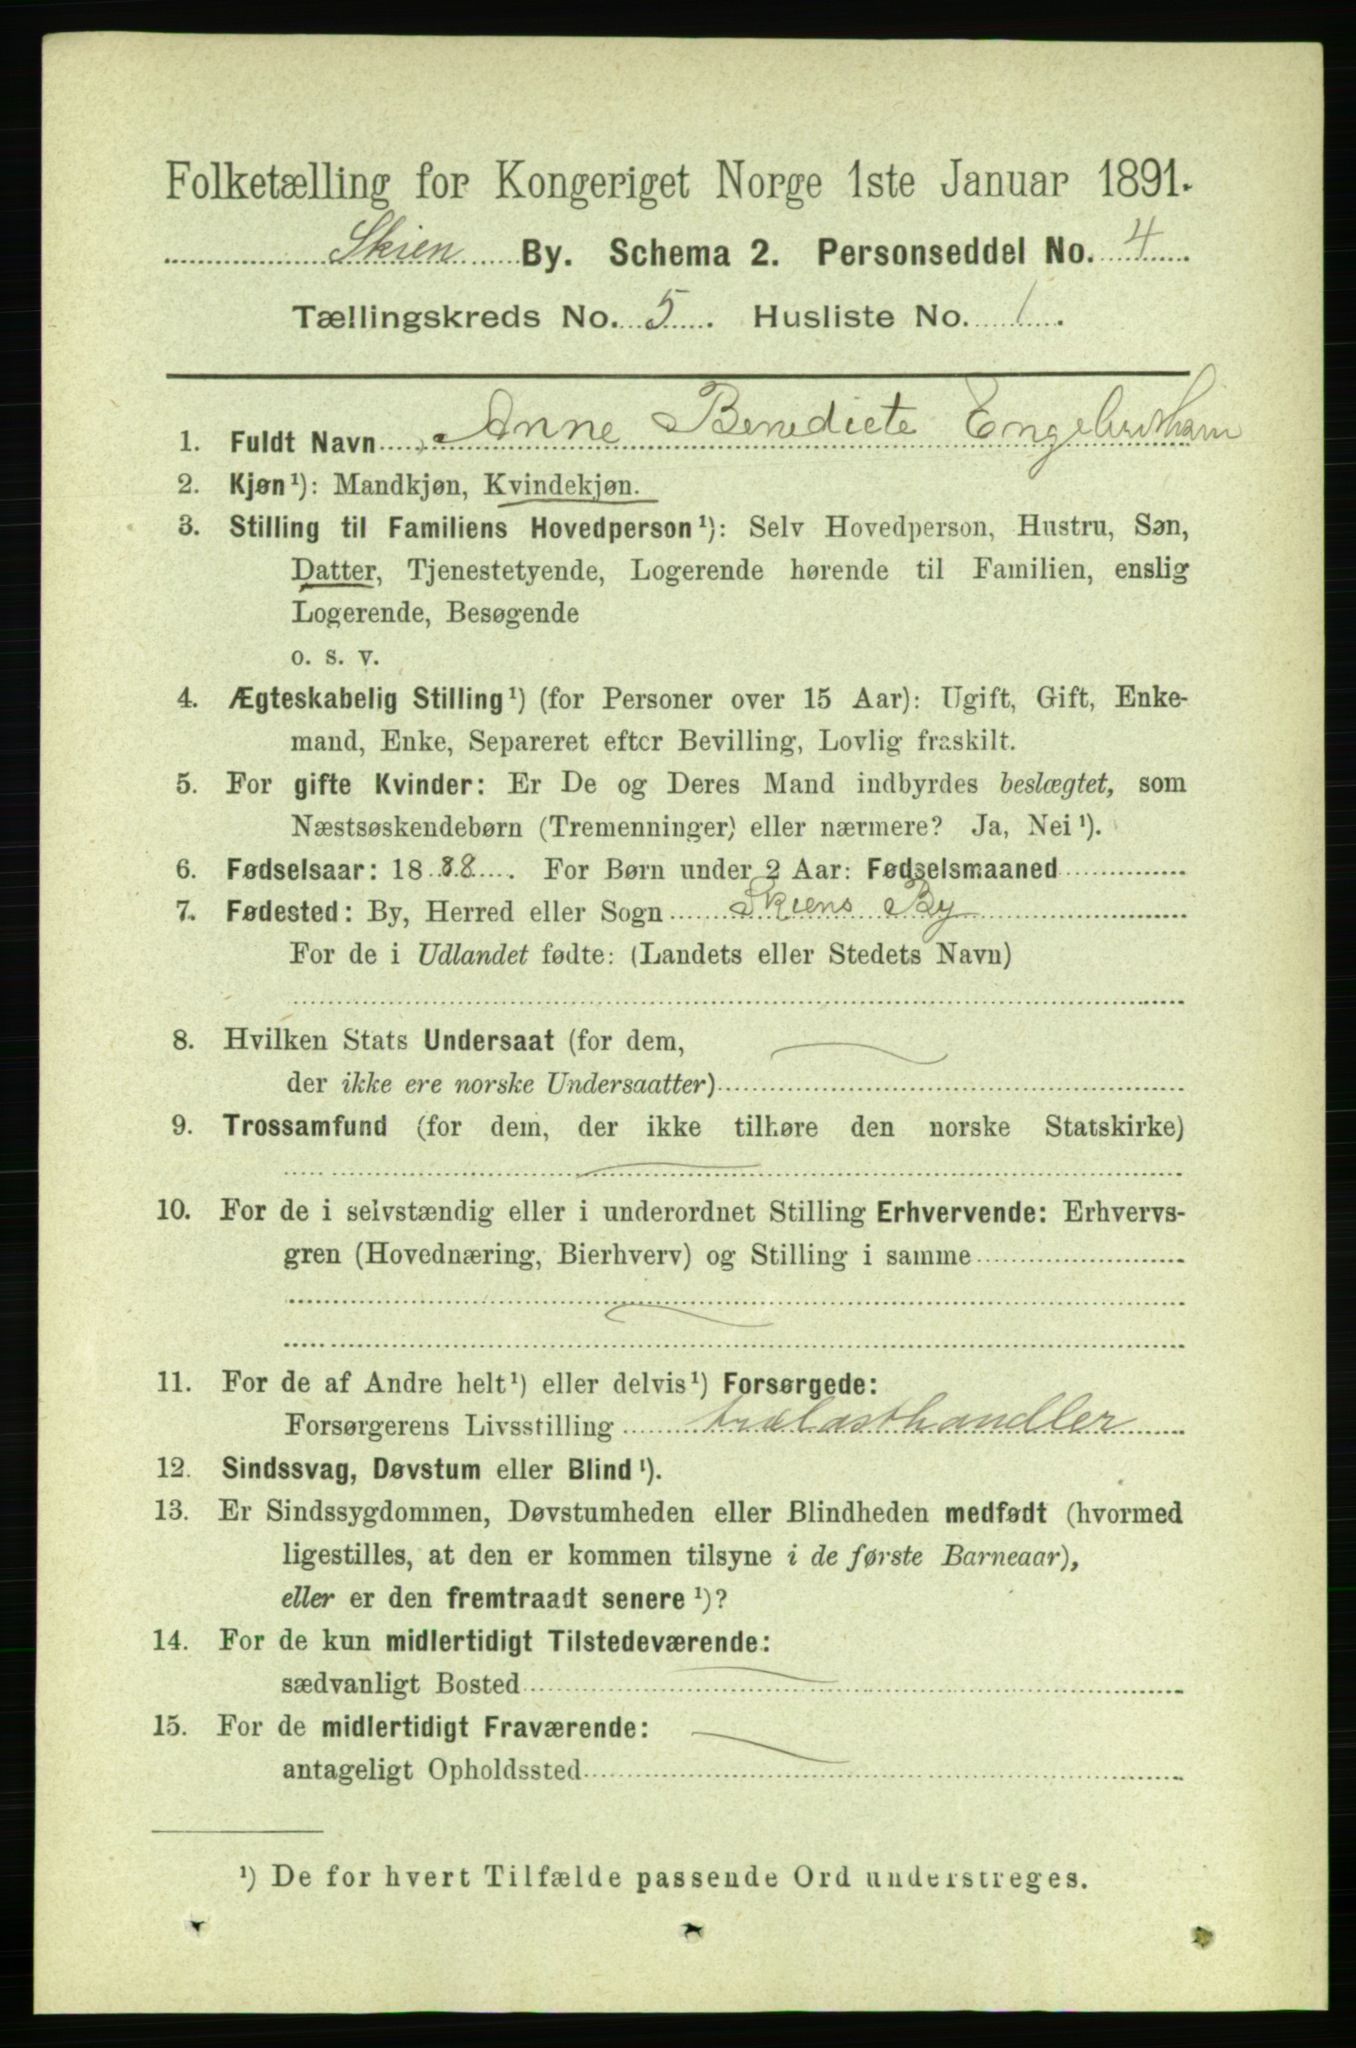 Folketælling for Kongeriget Norge 1ste Januar 1891.
Skien By. Schema 2. Personseddel No. 4
Tællingskreds No. 5. Husliste No. 1.
1. Fuldt Navn Anne Benedicte
2. Kjøn¹): Mandkjøn, Kvindekjøn.
3. Stilling til Familiens Hovedperson¹): Selv Hovedperson, Hustru, Søn,
Datter, Tjenestetyende, Logerende hørende til Familien, enslig
Logerende, Besøgende
o. s. v.
4. Ægteskabelig Stilling¹) (for Personer over 15 Aar): Ugift, Gift, Enke-
mand, Enke, Separeret efter Bevilling, Lovlig fraskilt.
5. For gifte Kvinder: Er De og Deres Mand indbyrdes beslægtet, som
Næstsøskendebørn (Tremenninger) eller nærmere? Ja, Nei¹).
6. Fødselsaar: 1888. For Børn under 2 Aar: Fødselsmaaned
7. Fødested: By, Herred eller Sogn Skiens By
For de i Udlandet fødte: (Landets eller Stedets Navn)
8. Hvilken Stats Undersaat (for dem,
der ikke ere norske Undersaatter)
9. Trossamfund (for dem, der ikke tilhøre den norske Statskirke)
10. For de i selvstændig eller i underordnet Stilling Erhvervende: Erhvervs-
gren (Hovednæring, Bierhverv) og Stilling i samme
11. For de af Andre helt¹) eller delvis¹) Forsørgede:
Forsørgerens Livsstilling trælasthandler
12. Sindssvag, Døvstum eller Blind¹).
13. Er Sindssygdommen, Døvstumheden eller Blindheden medfødt (hvormed
ligestilles, at den er kommen tilsyne i de første Barneaar),
eller er den fremtraadt senere¹)?
14. For de kun midlertidigt Tilstedeværende:
sædvanligt Bosted
15. For de midlertidigt Fraværende:
antageligt Opholdssted
¹) De for hvert Tilfælde passende Ord understreges.